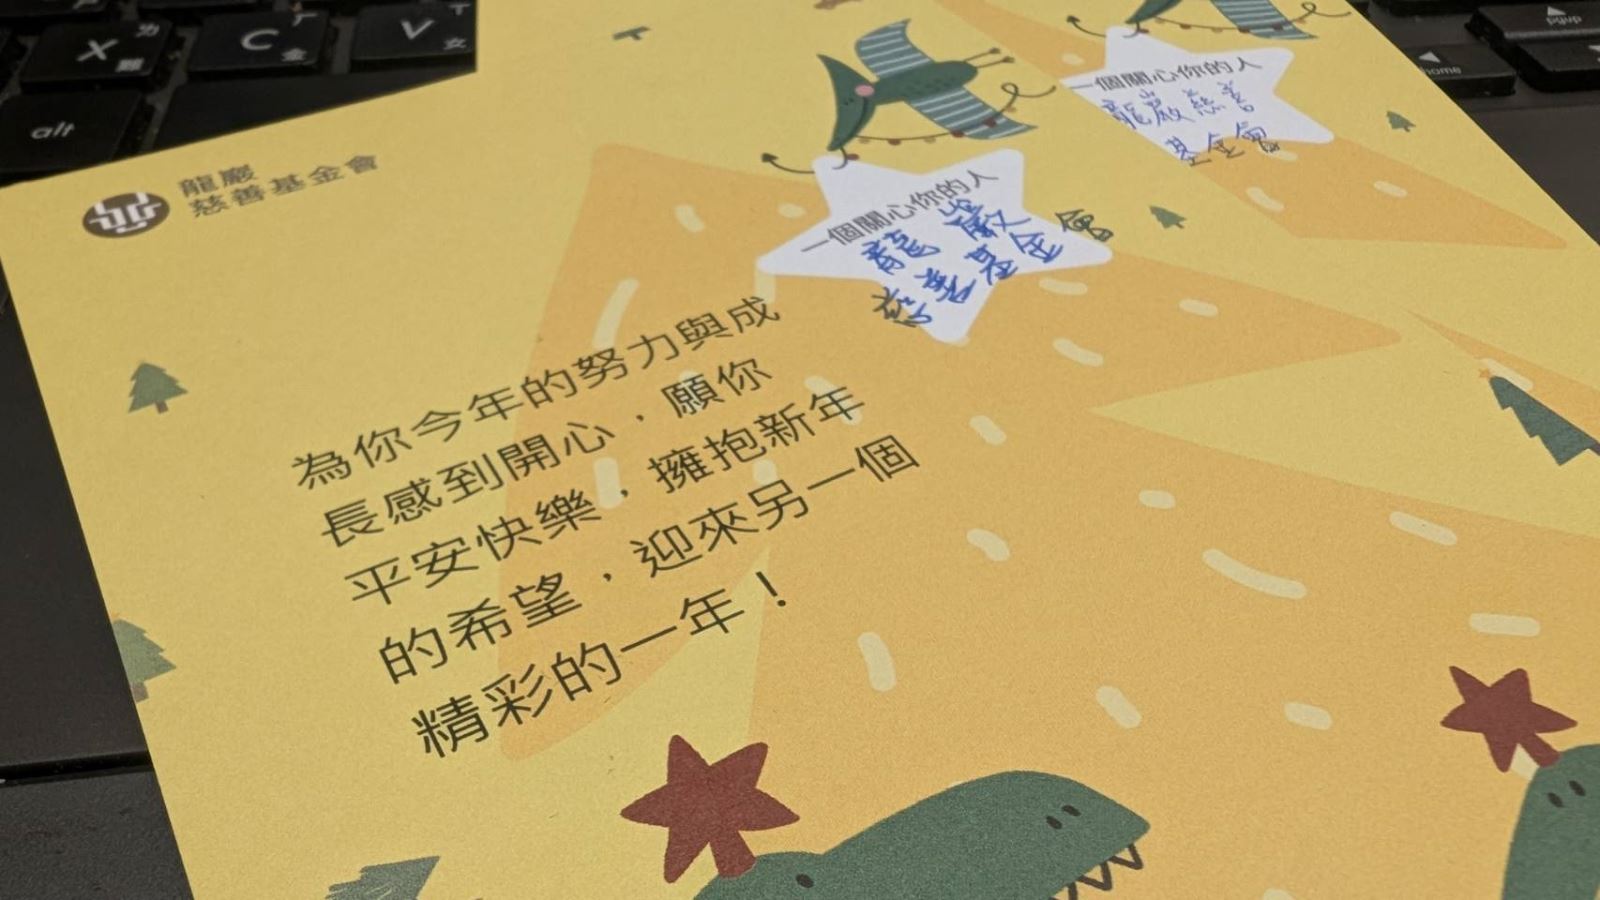 龍巖
慈善基金會
一個關心你的人
龍巖
慈善基金會
一個關心你的人
龍巖慈善
基金會
為你今年的努力與成
長感到開心，願你
平安快樂，擁抱新年
的希望，迎來另一個
精彩的一年！
X ㄌ 難
C ㄏ 金
V ㄒ 女
alt
home
pgup